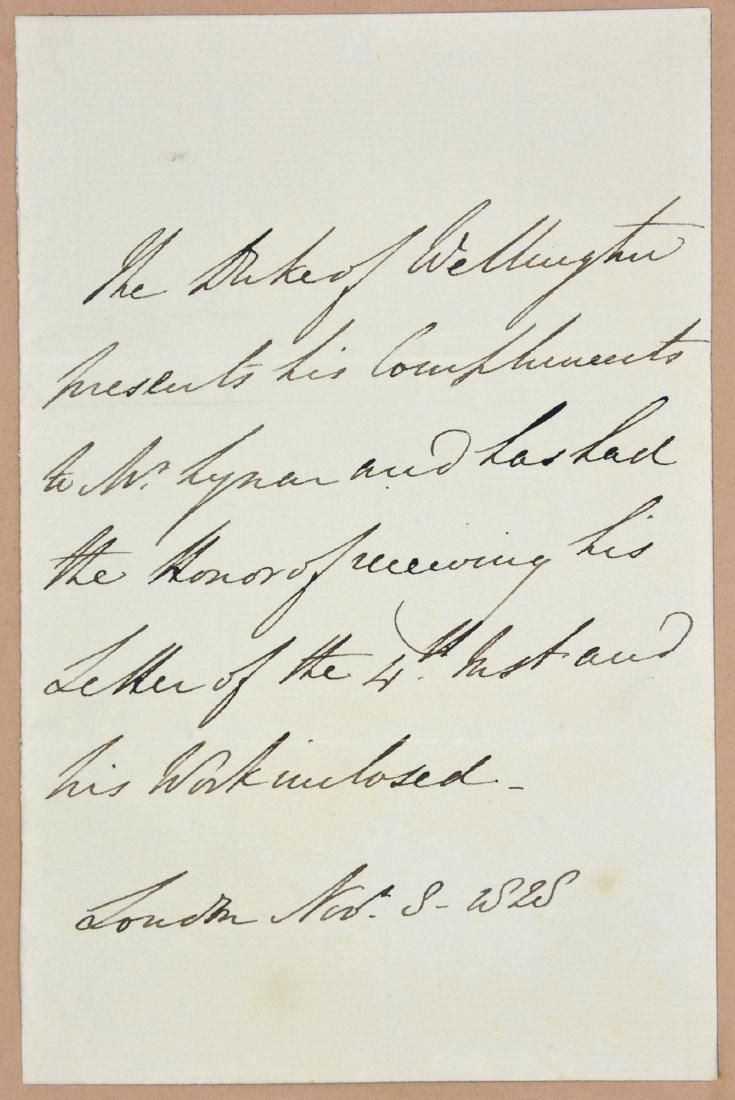 The Duke of Wellington
presents his Compliments
to Mr. Lynar and has had
the Honor of receiving his
Letter of the 4th. Inst and
his Work inclosed -
London Novr. 8 - 1828